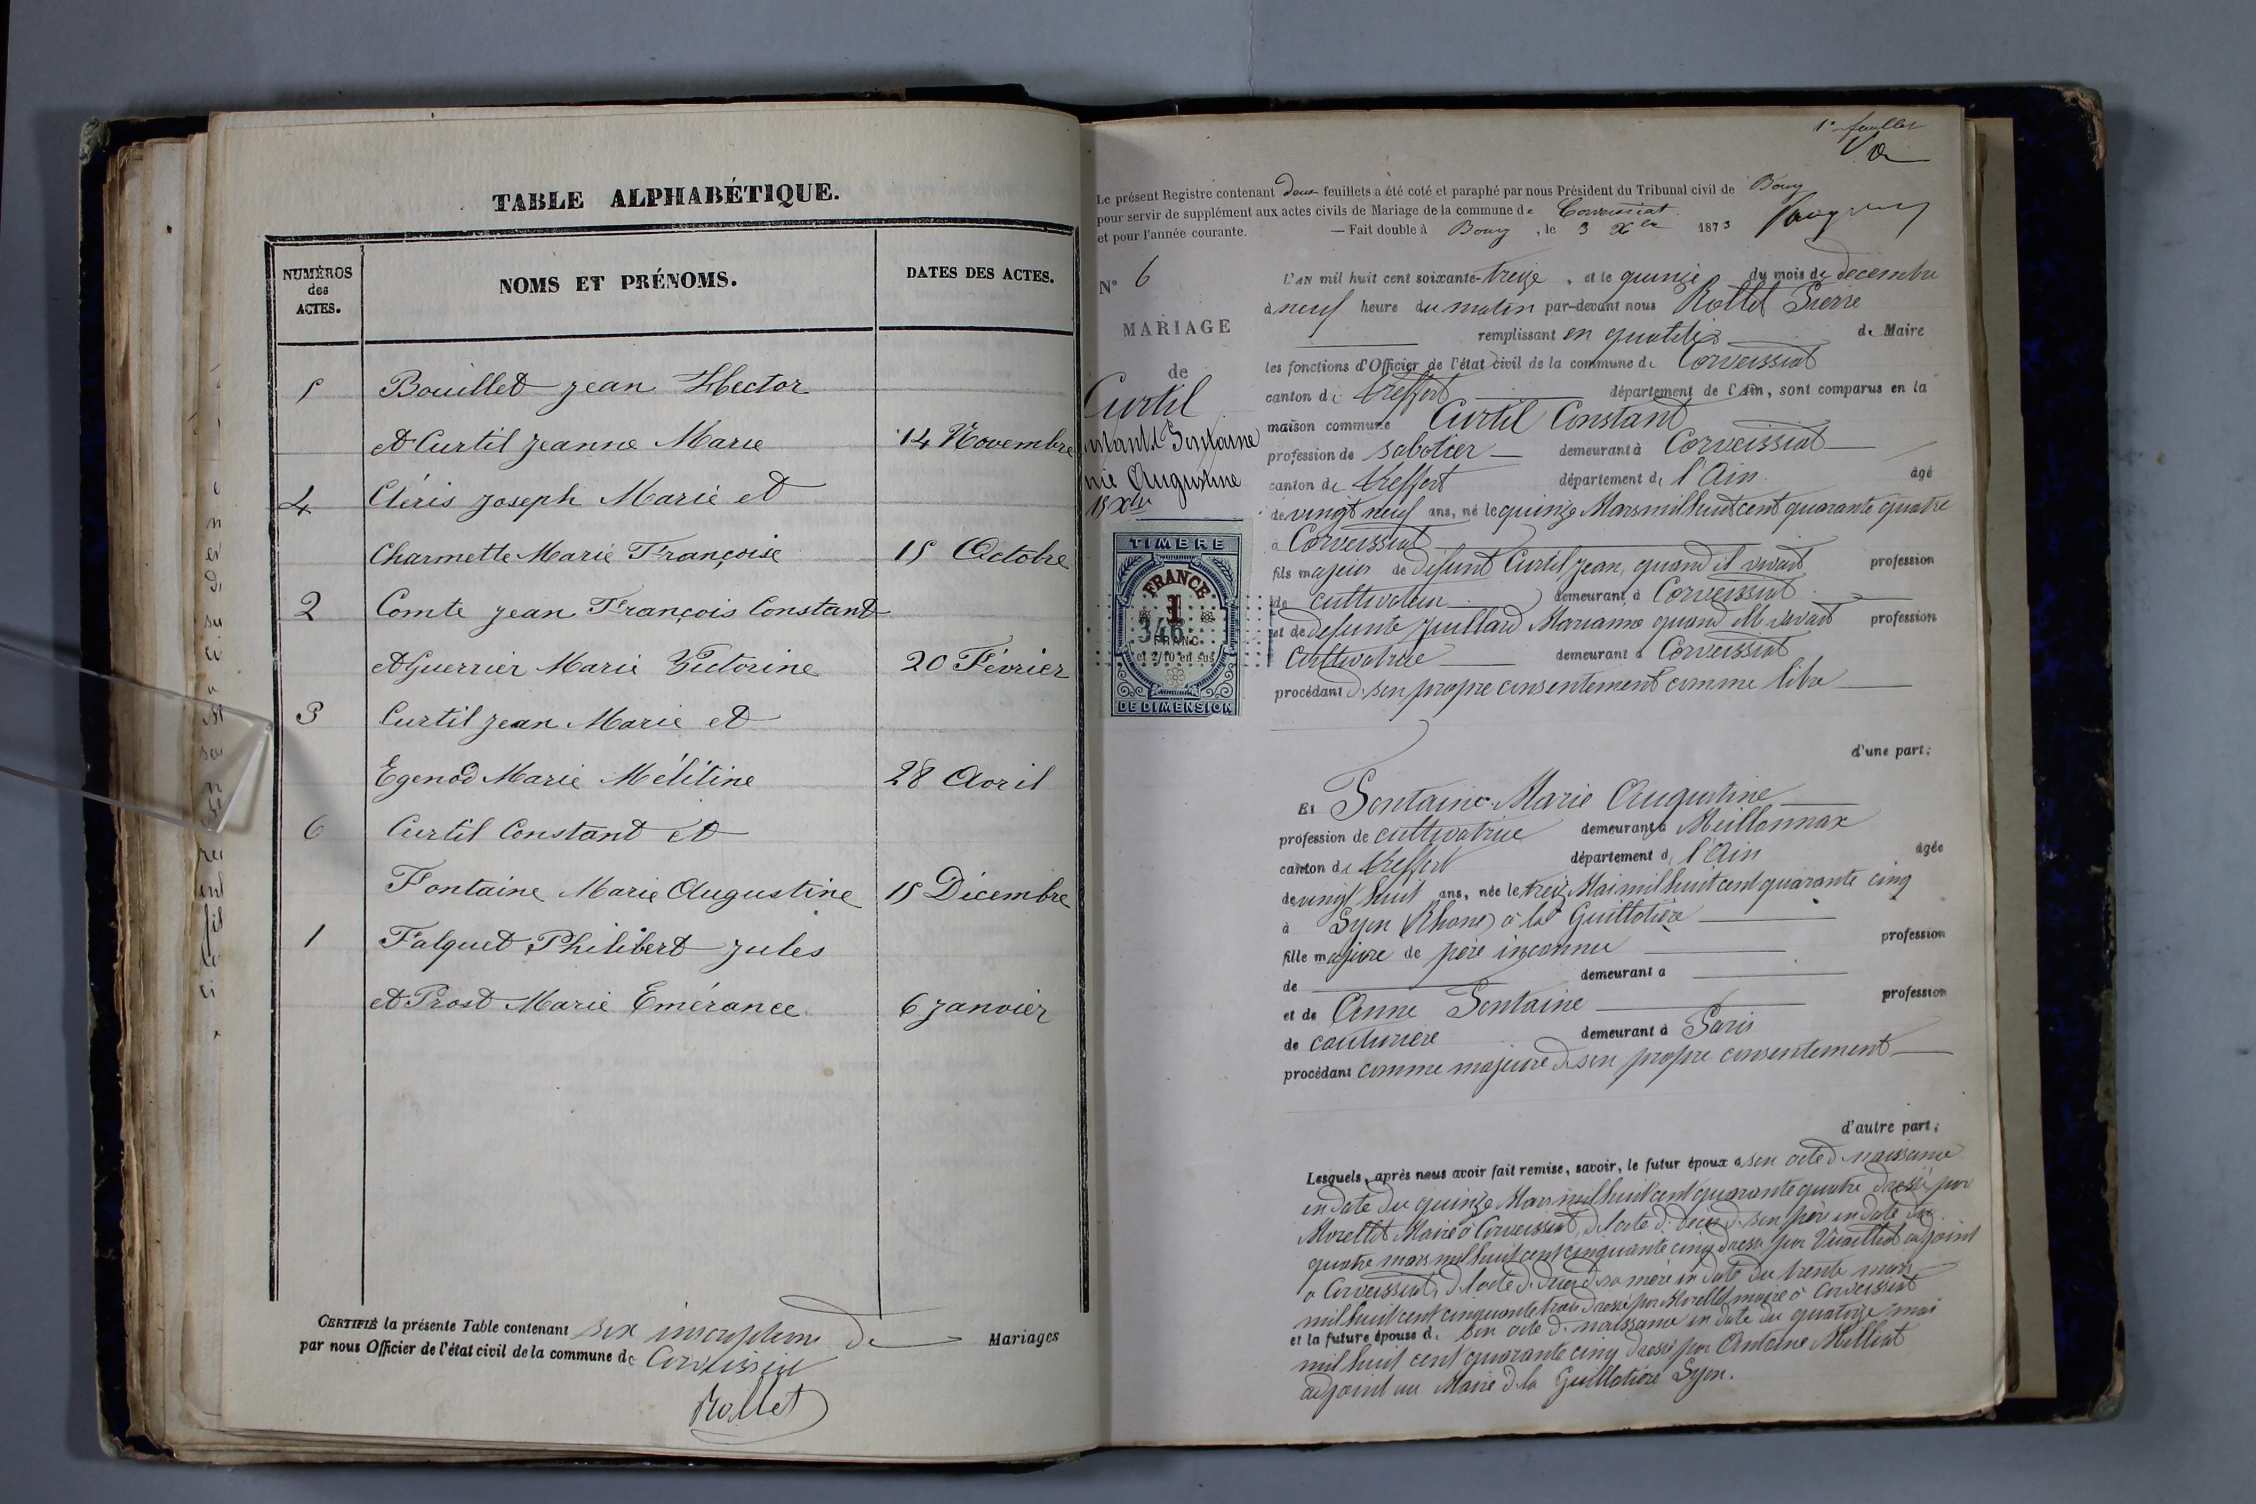 TABLE ALPHABÉTIQUE.
NUMÉROS des ACTES.
NOMS ET PRÉNOMS.
DATES DES ACTES.
5 Bouillet Jean Hector
et Curtil Jeanne Marie 14 Novembre
4 Cléris Joseph Marie et
Charmette Marie Françoise 15 Octobre
2 Comte Jean François Constant
et Guerrier Marie Victorine 20 Février
3 Curtil Jean Marie et
Egenod Marie Mélitine 28 Avril
6 Curtil Constant et
Fontaine Marie Augustine 15 Décembre
1 Falquet Philibert Jules
et Prost Marie Emérance 6 Janvier
CERTIFIÉ la présente Table contenant six inscriptions de Mariages
par nous Officier de l'état civil de la commune de Corveissiat
Rollet
1er feuillet
Le présent Registre contenant deux feuillets a été coté et paraphé par nous Président du Tribunal civil de Bourg
pour servir de supplément aux actes civils de Mariage de la commune de Corveissiat
et pour l'année courante. — Fait double à Bourg, le 3 Xbre 1873
N° 6
MARIAGE
de
Curtil
nstant et Fontaine
rie Augustine
15 Xbre
TIMBRE
FRANCE
1
346
FRANC
et 2/10 en sus
DE DIMENSION
L'AN mil huit cent soixante-treize, et le quinze du mois de décembre
à neuf heure du matin par-devant nous Rollet Pierre
remplissant en qualité de Maire
les fonctions d'Officier de l'état civil de la commune de Corveissiat
canton de treffort département de l'Ain, sont comparus en la
maison commune Curtil Constant
profession de sabotier demeurant à Corveissiat
canton de treffort département de l'Ain âgé
de vingt neuf ans, né le quinze Mars mil huit cent quarante quatre
à Corveissiat
fils majeur de défunt Curtil Jean, quand il vivait profession
de cultivateur demeurant à Corveissiat
et de défunte Juillard Marianne quand elle vivait profession
cultivatrice demeurant à Corveissiat
procédant de son propre consentement comme libre
d'une part;
Et Fontaine Marie Augustine
profession de cultivatrice demeurant à Meillonnax
canton de treffort département de l'Ain âgée
de vingt huit ans, née le treize Mai mil huit cent quarante cinq
à Lyon (Rhone) à la Guillotière
fille majeure de père inconnu profession
de demeurant à
et de Anne Fontaine profession
de couturière demeurant à Paris
procédant comme majeure de son propre consentement
d'autre part;
Lesquels, après nous avoir fait remise, savoir, le futur époux de son acte de naissance
en date du quinze Mars mil huit cent quarante quatre dressé par
Morellet Maire à Corveissiat, de l'acte de décès de son père en date du
quatre mars mil huit cent cinquante cinq dressé par Vuaillat adjoint
à Corveissiat, de l'acte de décès de sa mère en date du trente mars
mil huit cent cinquante trois dressé par Morellet maire à Corveissiat
et la future épouse de son acte de naissance en date du quatorze mai
mil huit cent quarante cinq dressé par Antoine Milliat
adjoint au Maire de la Guillotière Lyon.